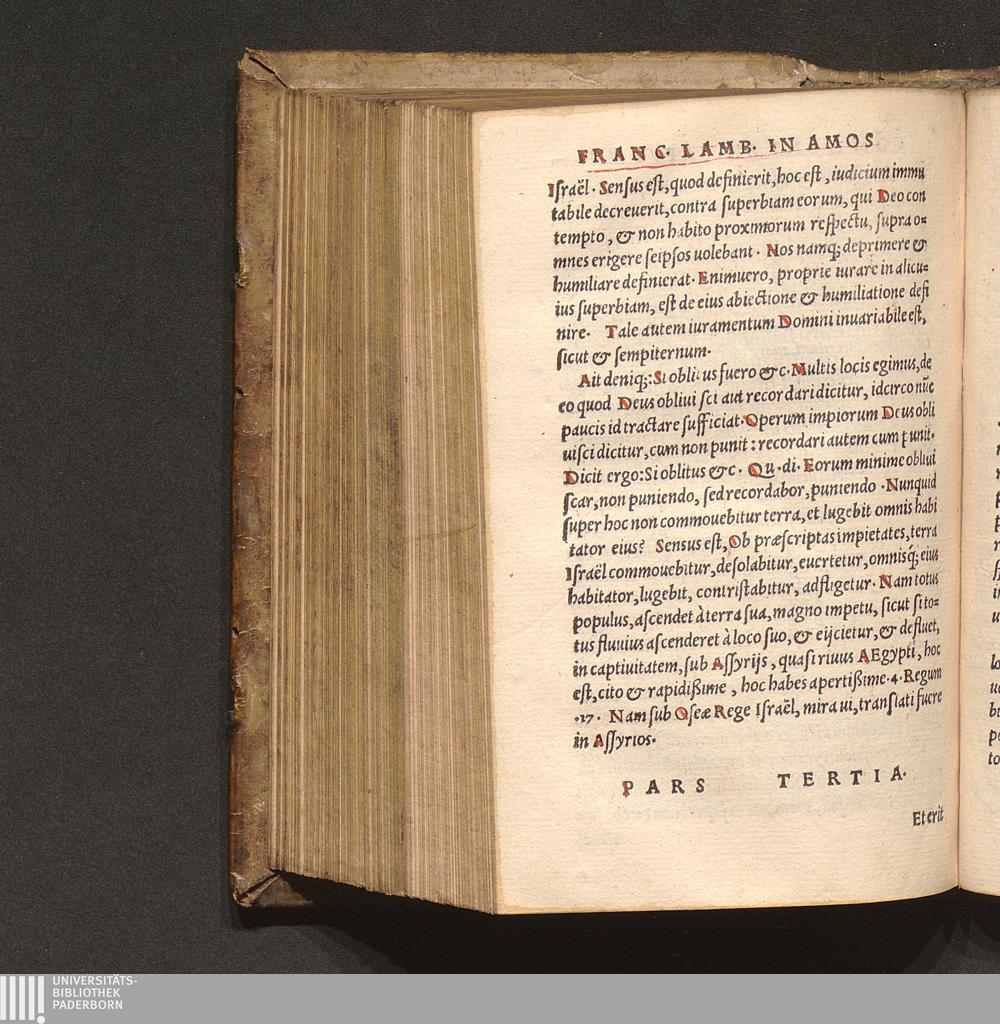 FRANC. LAMB. IN AMOS
Israël. Sensus est, quod definierit, hoc est, iudicium immu
tabile decreverit, contra superbiam eorum, qui Deo con
tempto, & non habito proximorum respectu, supra o=
mnes erigere seipsos uolebant. Nos namq; deprimere &
humiliare definierat. Enimuero, proprie iurare in alicu=
ius superbiam, est de eius abiectione & humiliatione defi
nire. Tale autem iuramentum Domini inuariabile est,
sicut & sempiternum.
Ait deniq;: Si oblitus fuero &c. Multis locis egimus, de
eo quod Deus obliuisci aut recordari dicitur, idcirco nūc
paucis id tractare sufficiat. Operum impiorum Deus obli
uisci dicitur, cum non punit: recordari autem cum punit.
Dicit ergo: Si oblitus &c. Qu. di. Eorum minime obliui
scar, non puniendo, sed recordabor, puniendo. Nunquid
super hoc non commouebitur terra, et lugebit omnis habi
tator eius? Sensus est, Ob præscriptas impietates, terra
Israël commouebitur, desolabitur, euertetur, omnisq́; eius
habitator, lugebit, contristabitur, adfligetur. Nam totus
populus, ascendet à terra sua, magno impetu, sicut si to=
tus fluuius ascenderet à loco suo, & eijcietur, & defluet,
in captiuitatem, sub Assyrijs, quasi riuus AEgypti, hoc
est, cito & rapidißime, hoc habes apertißime. 4. Regum
.17. Nam sub Oseæ Rege Israël, mira ui, translati fuere
in Assyrios.
PARS TERTIA.
Et erit
UNIVERSITÄTS-
BIBLIOTHEK
PADERBORN